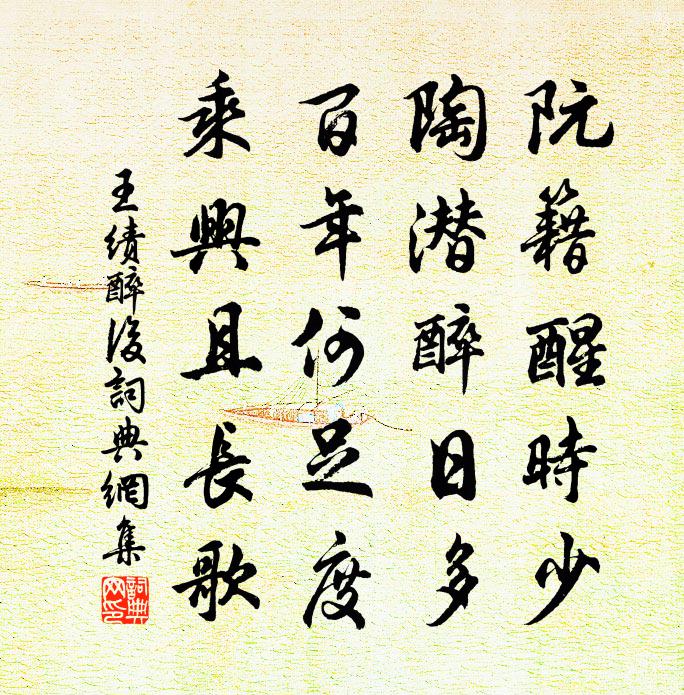 阮籍醒時少
陶潜醉日多
百年何足度
乘興且長歌
王績醉後詞典網集
詞典